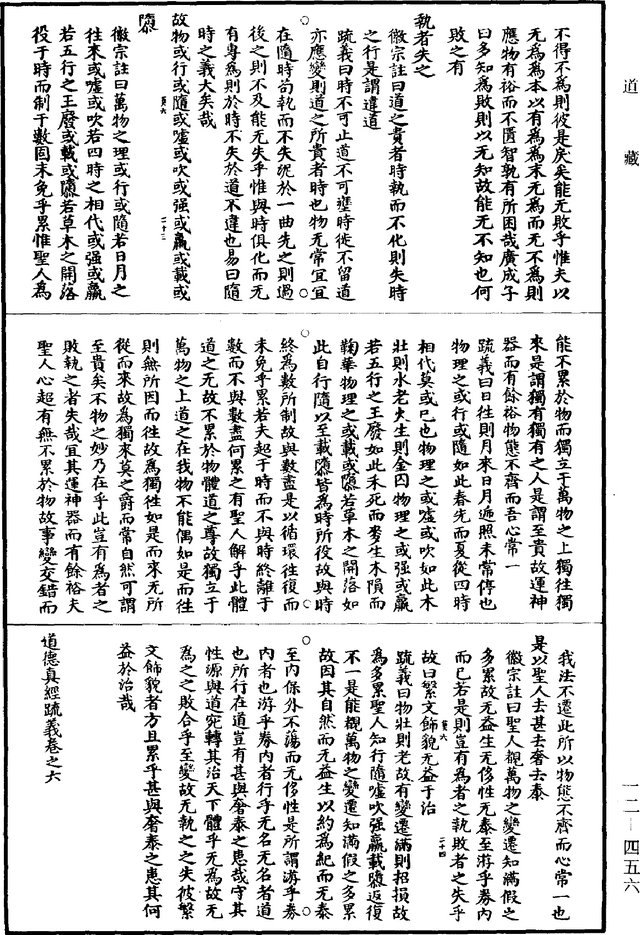 道藏
不得不爲則彼是戾矣能无敗乎惟夫以
无爲爲本以有爲爲末无爲而无不爲則
應物有裕而不匱智孰有所困哉廣成子
曰多知爲敗則以无知故能无不知也何
敗之有
執者失之
徽宗註曰道之貴者時執而不化則失時
之行是謂違道
疏義曰時不可止道不可壅時徙不留道
亦應變則道之所貴者時也物无常宜宜
在隨時苟執而不失於一曲先之則過
後之則不及能无失乎惟與時俱化而无
有專爲則於時不失於道不違也易曰隨
時之義大矣哉
故物或行或隨或噓或吹或强或羸或載或
隳
徽宗註曰萬物之理或行或隨若日月之
往來或噓或吹若四時之相代或强或羸
若五行之王廢或載或隳若草木之開落
役于時而制于數固未免乎累惟聖人爲
能不累於物而獨立于萬物之上獨往獨
來是謂獨有獨有之人是謂至貴故運神
器而有餘裕物態不齊而吾心常一
疏義曰日往則月來日月遞照未常停也
物理之或行或隨如此春先而夏從四時
相代莫或已也物理之或噓或吹如此木
壯則水老火生則金囚物理之或强或羸
若五行之王廢如此未死而麥生木隕而
鞠華物理之或載或隳若草木之開落如
此自行隨以至載隳皆爲時所役故與時
終爲數所制故與數盡是以循環往復而
未免乎累若夫超于時而不與時終離于
數而不與數盡何累之有聖人解乎此體
道之无故不累於物體道之尊故獨立于
萬物之上道之在我物不能偶如是而往
則無所因而往故爲獨往如是而來无所
從而來故爲獨來莫之爵而常自然可謂
至貴矣不物之妙乃在乎此豈有爲者之
敗執之者失哉宜其運神器而有餘裕夫
聖人心超有無不累於物故事變交錯而
我法不遷此所以物態不齊而心常一也
是以聖人去甚去奢去泰
徽宗註曰聖人覩萬物之變遷知滿假之
多累故无益生无侈性无泰至游乎券内
而已若是則豈有爲者之執敗者之失乎
故曰繁文飾貌无益于治
疏義曰物壯則老故有變遷滿則招損故
爲多累聖人知行隨噓吹强羸載隳返復
不一是能覩萬物之變遷知滿假之多累
故因其自然而无益生以約爲紀而无泰
至内保外不蕩而无侈性是所謂游乎券
内者也游乎券内者行乎无名无名者道
也所行在道豈有甚與奢泰之患哉守其
性源與道宛轉其治天下體乎无爲故无
爲之之敗合乎至變故无執之之失彼繁
文飾貌者方且累乎甚與奢泰之患其何
益於治哉
道德真經疏義卷之六
一二—四五六